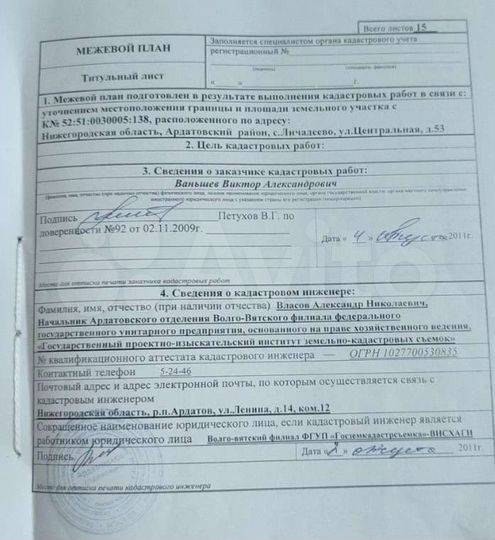 Всего листов 15
МЕЖЕВОЙ ПЛАН
Заполняется специалистом органа кадастрового учета
регистрационный №
Титульный лист
(подпись) (фамилия, инициалы)
« » г.
1. Межевой план подготовлен в результате выполнения кадастровых работ в связи с:
уточнением местоположения границы и площади земельного участка с
К№ 52:51:0030005:138, расположенного по адресу:
Нижегородская область, Ардатовский район, с.Личадеево, ул.Центральная, д.53
2. Цель кадастровых работ:
3. Сведения о заказчике кадастровых работ:
Ваньшев Виктор Александрович
Подпись Петухов В.Г. по
доверенности №92 от 02.11.2009г.
Дата « 4 » августа 2011г.
Место для оттиска печати заказчика кадастровых работ
4. Сведения о кадастровом инженере:
Фамилия, имя, отчество (при наличии отчества) Власов Александр Николаевич,
Начальник Ардатовского отделения Волго-Вятского филиала федерального
государственного унитарного предприятия, основанного на праве хозяйственного ведения,
«Государственный проектно-изыскательский институт земельно-кадастровых съемок»
№ квалификационного аттестата кадастрового инженера — ОГРН 1027700530835
Контактный телефон 5-24-46
Почтовый адрес и адрес электронной почты, по которым осуществляется связь с
кадастровым инженером
Нижегородская область, р.п.Ардатов, ул.Ленина, д.14, ком.12
Сокращенное наименование юридического лица, если кадастровый инженер является
работником юридического лица Волго-вятский филиал ФГУП «Госземкадастрсъемка»-ВИСХАГИ
Подпись Дата « » августа 2011г.
Место для оттиска печати кадастрового инженера